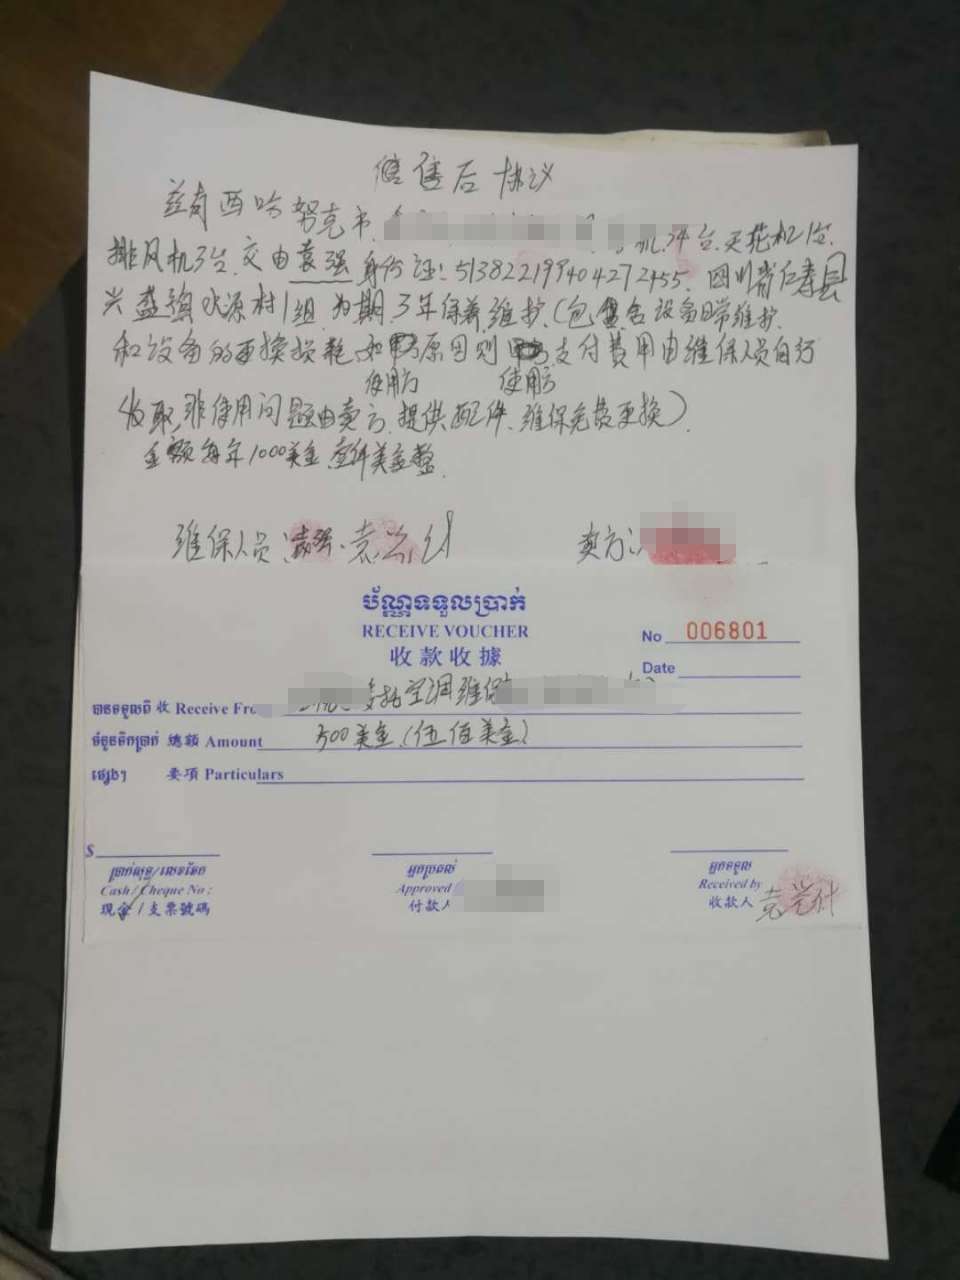 售后协议
兹有西哈努克市 34台.天花机1台.
排风机3台.交由袁强身份证:513822199404272455.四川省仁寿县
兴盛镇水源村1组.为期.3年保养维护.(包含设备日常维护
和设备的更换损耗.如使用方原因则使用方支付费用由维保人员自行
收取,非使用问题由卖方.提供配件.维保免费更换)
金额每年1000美金.壹仟美金整.
维保人员:袁强. 卖方:
ប័ណ្ណទទួលប្រាក់
RECEIVE VOUCHER
收款收據
No 006801
Date
បានទទួលពី 收 Receive Fro 空调维保
ចំនួនទឹកប្រាក់ 總額 Amount 500美金.(伍佰美金)
ផ្សេងៗ 要項 Particulars
$
ប្រាក់សុទ្ធ/លេខសែក អ្នកប្រគល់ អ្នកទទួល
Cash / Cheque No : Approved Received by
現金 / 支票號碼 付款人 收款人